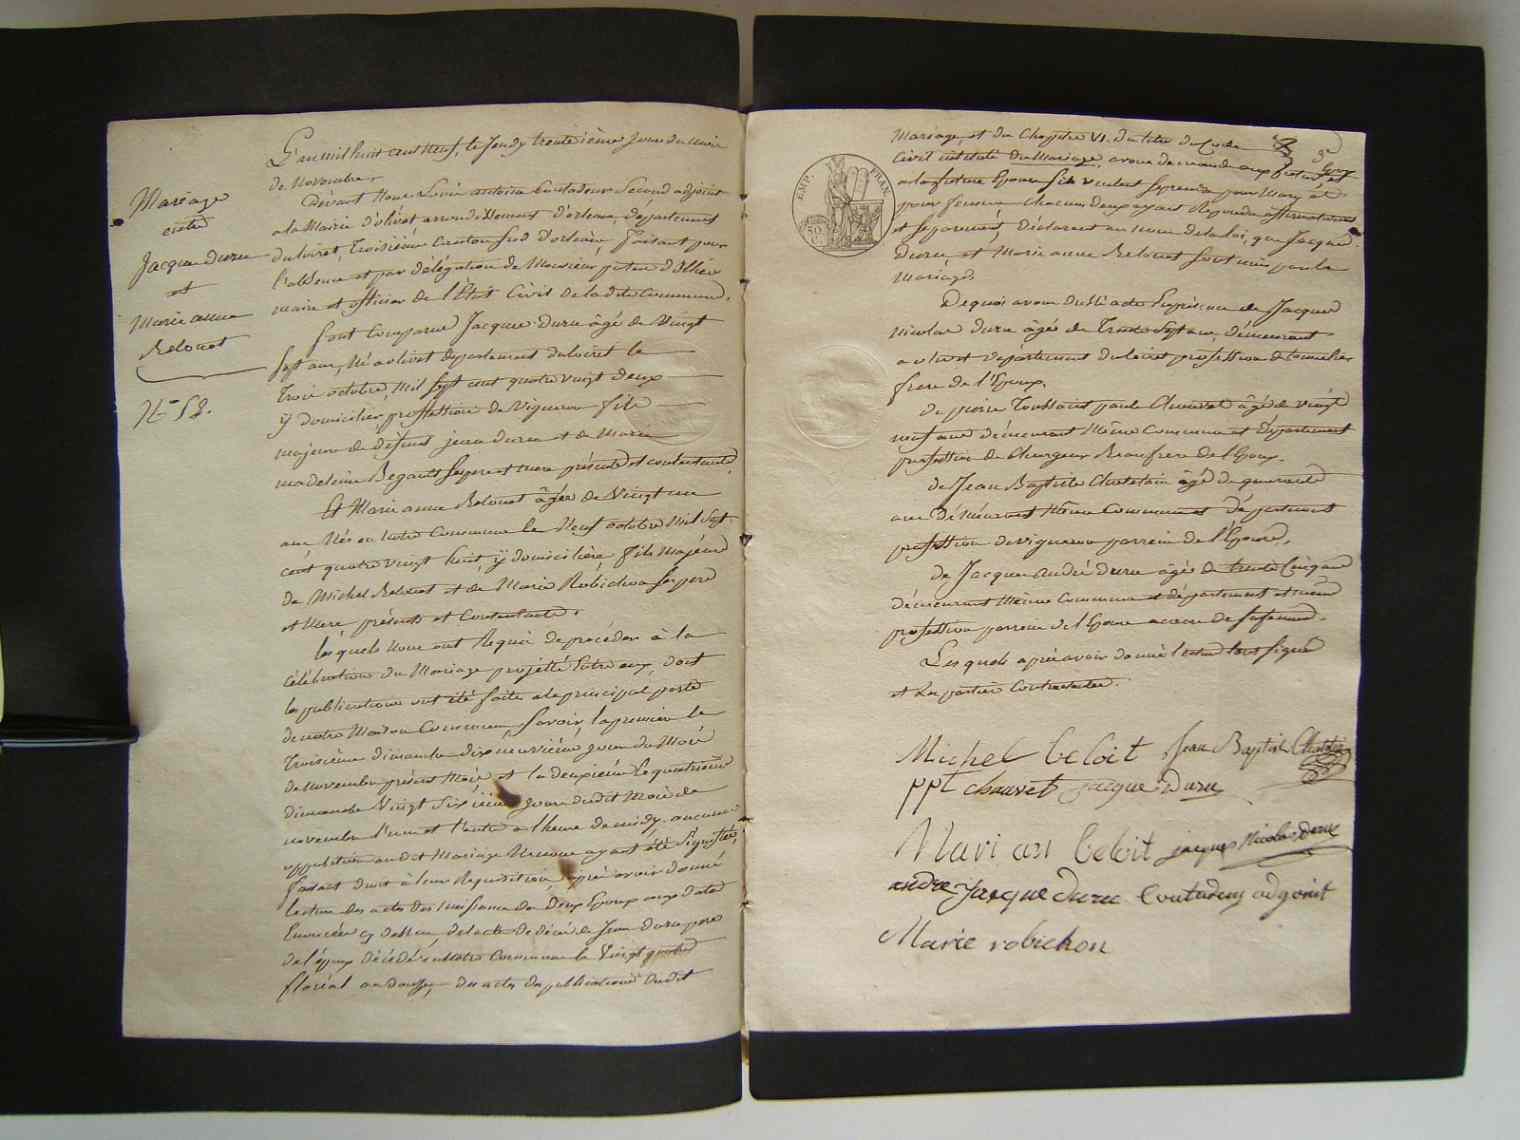 Mariage
entre
Jacque duru
et
Marie anne
Belouet
N° 58.
L'an mil huit cent neuf, le Jeudy trentième Jour du mois
de Novembre.
Devant Nous Louis antoine Coutadeur Second adjoint
a la Mairie d'olivet arrondissement d'orleans, departement
du loiret, Troisième Canton Sud D'orleans, faisant pour
l'absence et par délégation de Monsieur
maire et officier de l'Etat Civil de la dite Commune.
Sont Comparu Jacque duru âgé de Vingt
Sept ans, Né a olivet departement du loiret le
Trois octobre, mil Sept cent quatre vingt deux
y domicilier, proffession de Vigneron fils
majeure de defunt jean duru et de Marie
madeleine Begault Ses pere et mere présente et contentante.
Et Marie anne Belouet âgée de Vingt un
ans Née en Notre Commune le Neuf octobre Mil Sept
cent quatre vingt huit, y domiciliére, fille Majeure
de Michel Belouet et de Marie Robichon Ses pere
et Mere présents et Contentants.
les quels nous ont Requi de proceder à la
célébration du Mariage projetté Entre eux, dont
les publications ont été faites a la principal porte
de notre Maison Commune, Savoir, la premiere le
Troisième dimanche dix neuvieme jour du Mois
de Novembre présent Mois, et la deuxieme le quatrieme
dimanche Vingt Sixième Jour dudit Mois de
novembre l'un et l'autre a l'heure de midy. aucune
opposition au dit Mariage Ne nous ayant été Signifiée,
faisant droit à leur Requisition, après avoir donné
lecture des actes de Naissance des Deux Epoux aux dates
Enoncées cy dessus, de l'acte de décès de Jean duru pere
de l'époux décédé en Notre Commune le Vingt quatre
floréal an douze, des actes de publications dudit
EMP. FRAN.
50
C.
Mariage, et du Chapitre VI. du titre du Code
Civil intitulé du Mariage, avons demandé au futur Epoux et
a la future Epouse s'ils veulent se prendre pour Mary et
pour femme, chacun d'eux ayant Repondu affirmativement
et séparément, Déclarons au nom de la loi, que Jacque
Duru, et Marie anne Belouet Sont unis par le
Mariage.
De quoi avons dressé acte En présence de Jacque
Nicolas duru âgée de Trente Sept ans, demeurant
a olivet departement du loiret profession de Tonnelier
frere de l'Epoux.
de pierre Toussaint paul Chauvet âgé de vingt
neuf ans demeurant Même Commune et departement
profession de Chargeur Beaufrere de l'Epoux.
de Jean Baptiste Chatelain âgé de quarante
ans demeurant Même Commune et département
profession de vigneron parrein de l'Epouse,
de Jacque André duru âgée de trente Cinq ans
demeurant Même Commune et département et même
profession parrein de l'Epouse a cause de sa femme.
Les quels après avoir donné lecture sont signé
et les parties Contractantes.
Michel beloit Jean Baptiste Chatelain
ppt chauvet jacque Duru
Mari an beloit jacques Nicolas duru
andre Jacque duru Coutadeur adjoint
Marie robichon